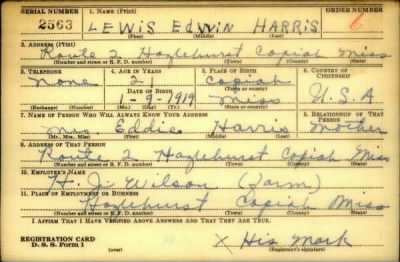 SERIAL NUMBER 1. NAME (Print) ORDER NUMBER
2563 LEWIS EDWIN HARRIS 6
(First) (Middle) (Last)
2. ADDRESS (Print)
Route 2 Hazlehurst Copiah Miss
(Number and street or R. F. D. number) (Town) (County) (State)
3. TELEPHONE 4. AGE IN YEARS 5. PLACE OF BIRTH 6. COUNTRY OF CITIZENSHIP
None 21 Copiah
DATE OF BIRTH (Town or county)
1-9-1919 Miss U.S.A
(Exchange) (Number) (Mo.) (Day) (Yr.) (State or country)
7. NAME OF PERSON WHO WILL ALWAYS KNOW YOUR ADDRESS 8. RELATIONSHIP OF THAT PERSON
Mrs. Eddie Harris Mother
(Mr., Mrs., Miss) (First) (Middle) (Last)
9. ADDRESS OF THAT PERSON
Route 2 Hazlehurst Copiah Miss
(Number and street or R. F. D. number) (Town) (County) (State)
10. EMPLOYER'S NAME
H. J. Wilson (Farm)
11. PLACE OF EMPLOYMENT OR BUSINESS
Hazlehurst Copiah Miss
(Number and street or R. F. D. number) (Town) (County) (State)
I AFFIRM THAT I HAVE VERIFIED ABOVE ANSWERS AND THAT THEY ARE TRUE.
REGISTRATION CARD
D. S. S. Form 1 (over) X His Mark
(Registrant's signature)